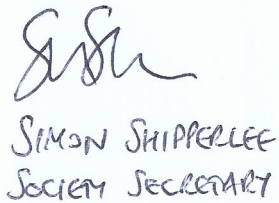 SIMON SHIPPERLEE
SOCIETY SECRETARY